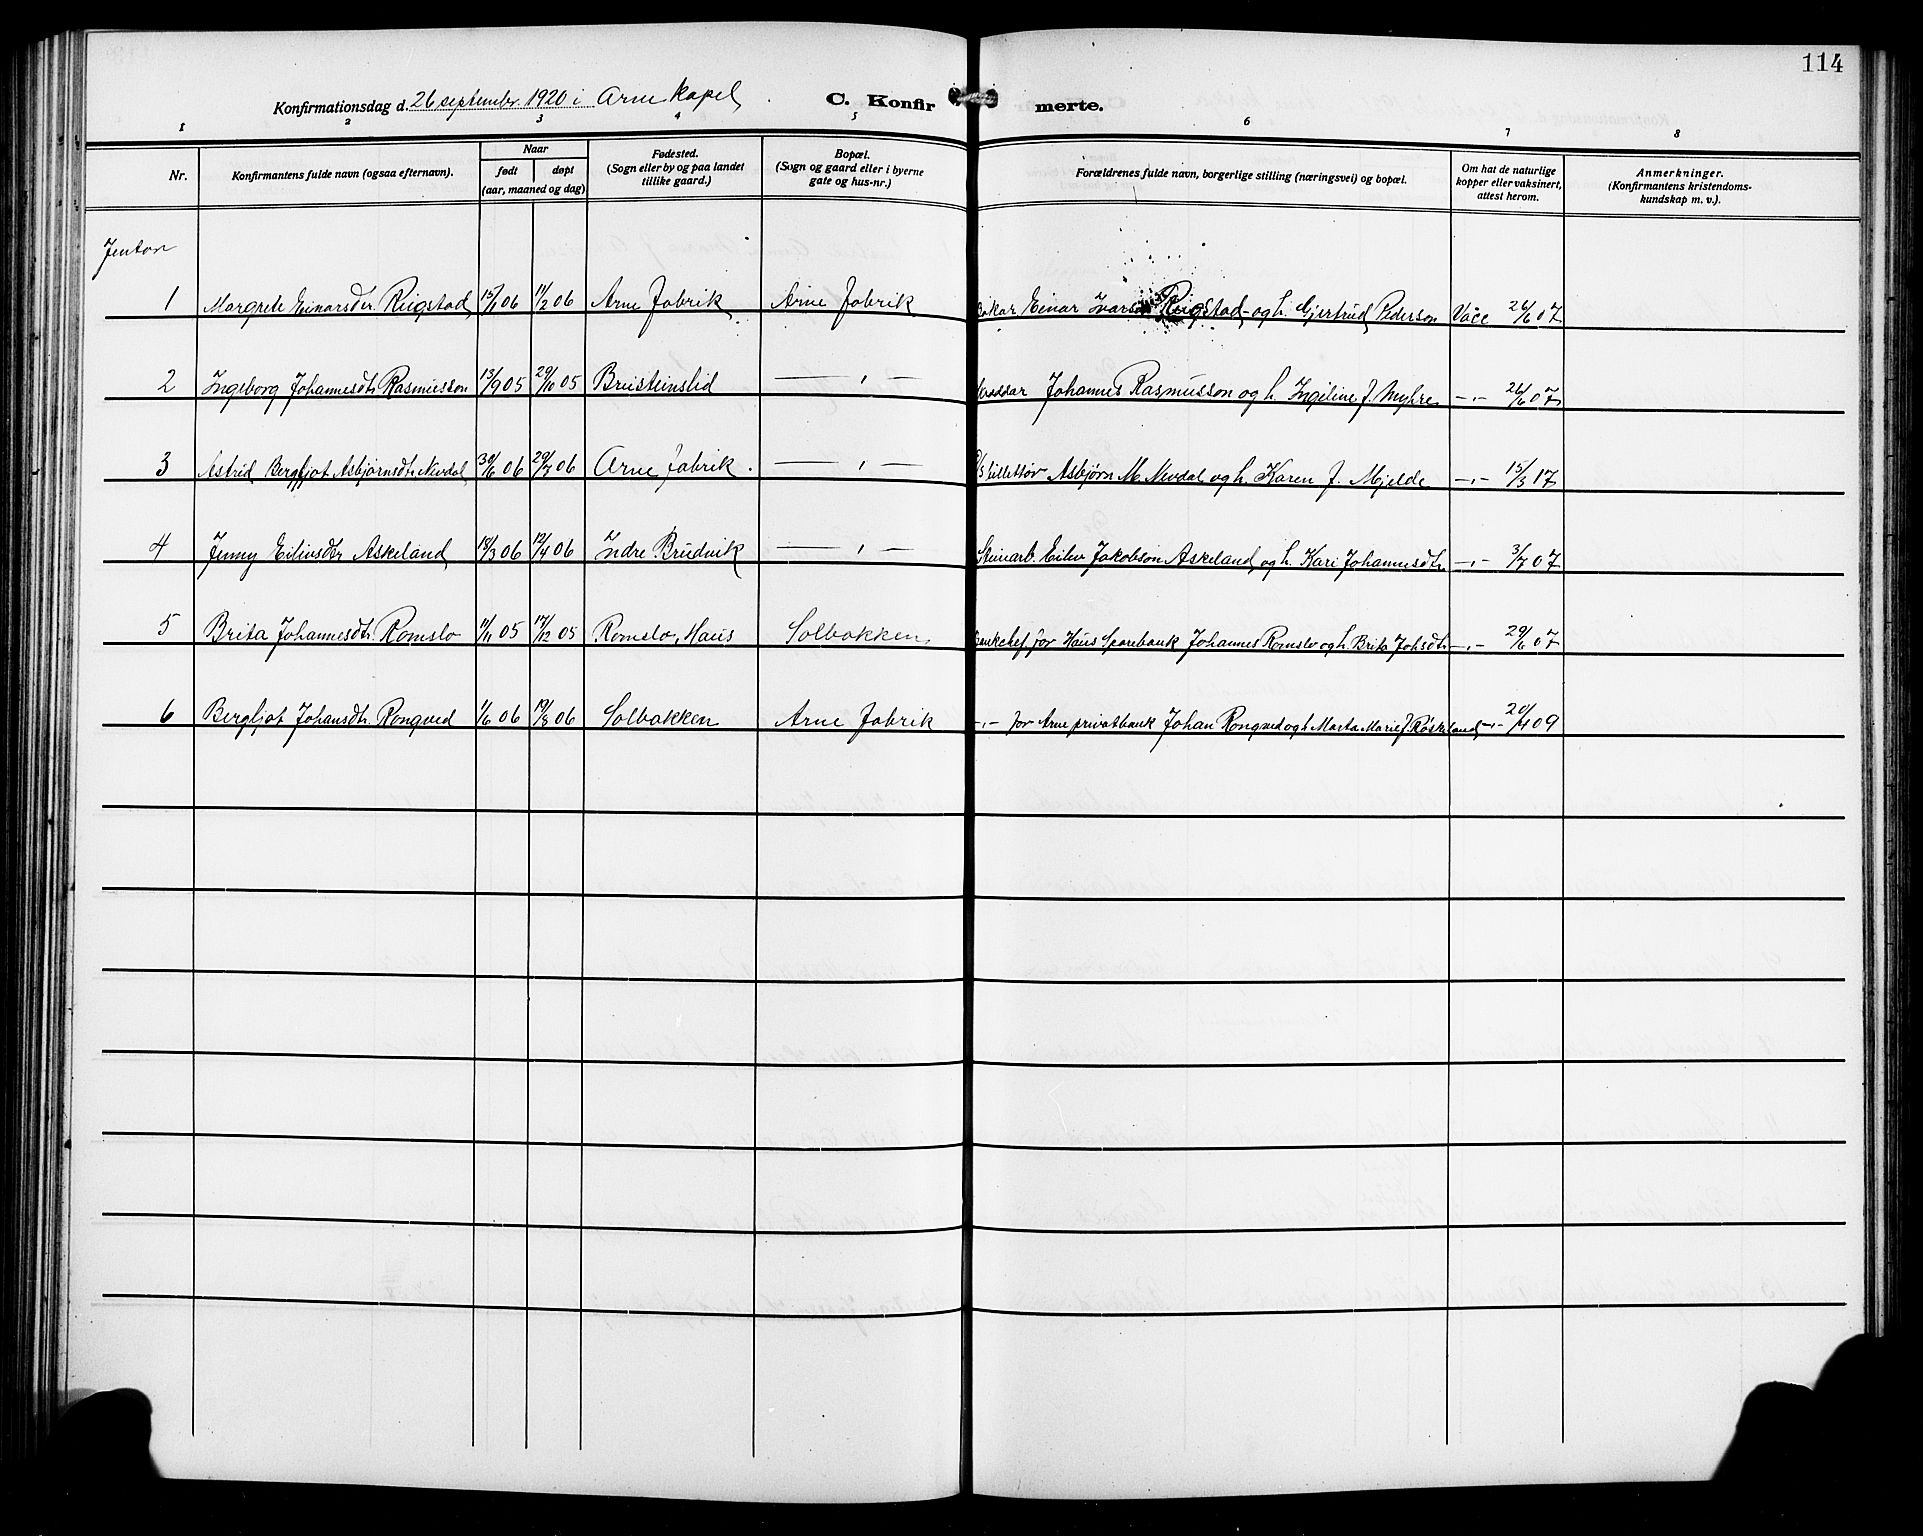 114
Konfirmationsdag d. 26 september 1920 i Arne kapel. C. Konfirmerte.
1 2 3 4 5 6 7 8
Nr. Konfirmantens fulde navn (ogsaa efternavn). Naar født døpt (aar, maaned og dag) Fødested. (Sogn eller by og paa landet tillike gaard.) Bopæl. (Sogn og gaard eller i byerne gate og hus-nr.) Forældrenes fulde navn, borgerlige stilling (næringsvei) og bopæl. Om hat de naturlige kopper eller vaksinert, attest herom. Anmerkninger. (Konfirmantens kristendomskundskap m. v.).
Jentor
1 Margrete Einarsdtr. Reigstad 15/1 06 11/2 06 Arne Fabrik Arne Fabrik Bakar Einar Ivarson Reigstad og h. Gjertrud Pederson Vacc 26/6 07
2 Ingeborg Johannesdtr. Rasmusson 13/9 05 29/10 05 Breisteinslid — " — Johannes Rasmusson og h. Ingeline J. Myhre —"— 26/6 07
3 Astrid Bergljot Asbjørnsdtr. Nevdal 30/6 06 29/7 06 Arne fabrik. — " — Asbjørn M. Nevdal og h. Karen J. Mjelde —"— 15/3 17
4 Jenny Eilivsdtr Askeland 18/3 06 12/4 06 Indre Brudvik — " — Steinarb. Eiliv Jakobson Askeland og h. Kari Johannesdtr —"— 3/7 07
5 Brita Johannesdtr. Romslo 11/11 05 17/12 05 Romslo, Haus Solbakken Bankchef for Haus Sparebank Johannes Romslo og h. Brita Johsdtr —"— 29/6 07
6 Bergljot Johansdtr. Rongved 1/6 06 19/8 06 Solbakken Arne Fabrik —"— for Arne privatbank Johan Rongved og h. Marta Marie J. Røskeland —"— 20/4 09